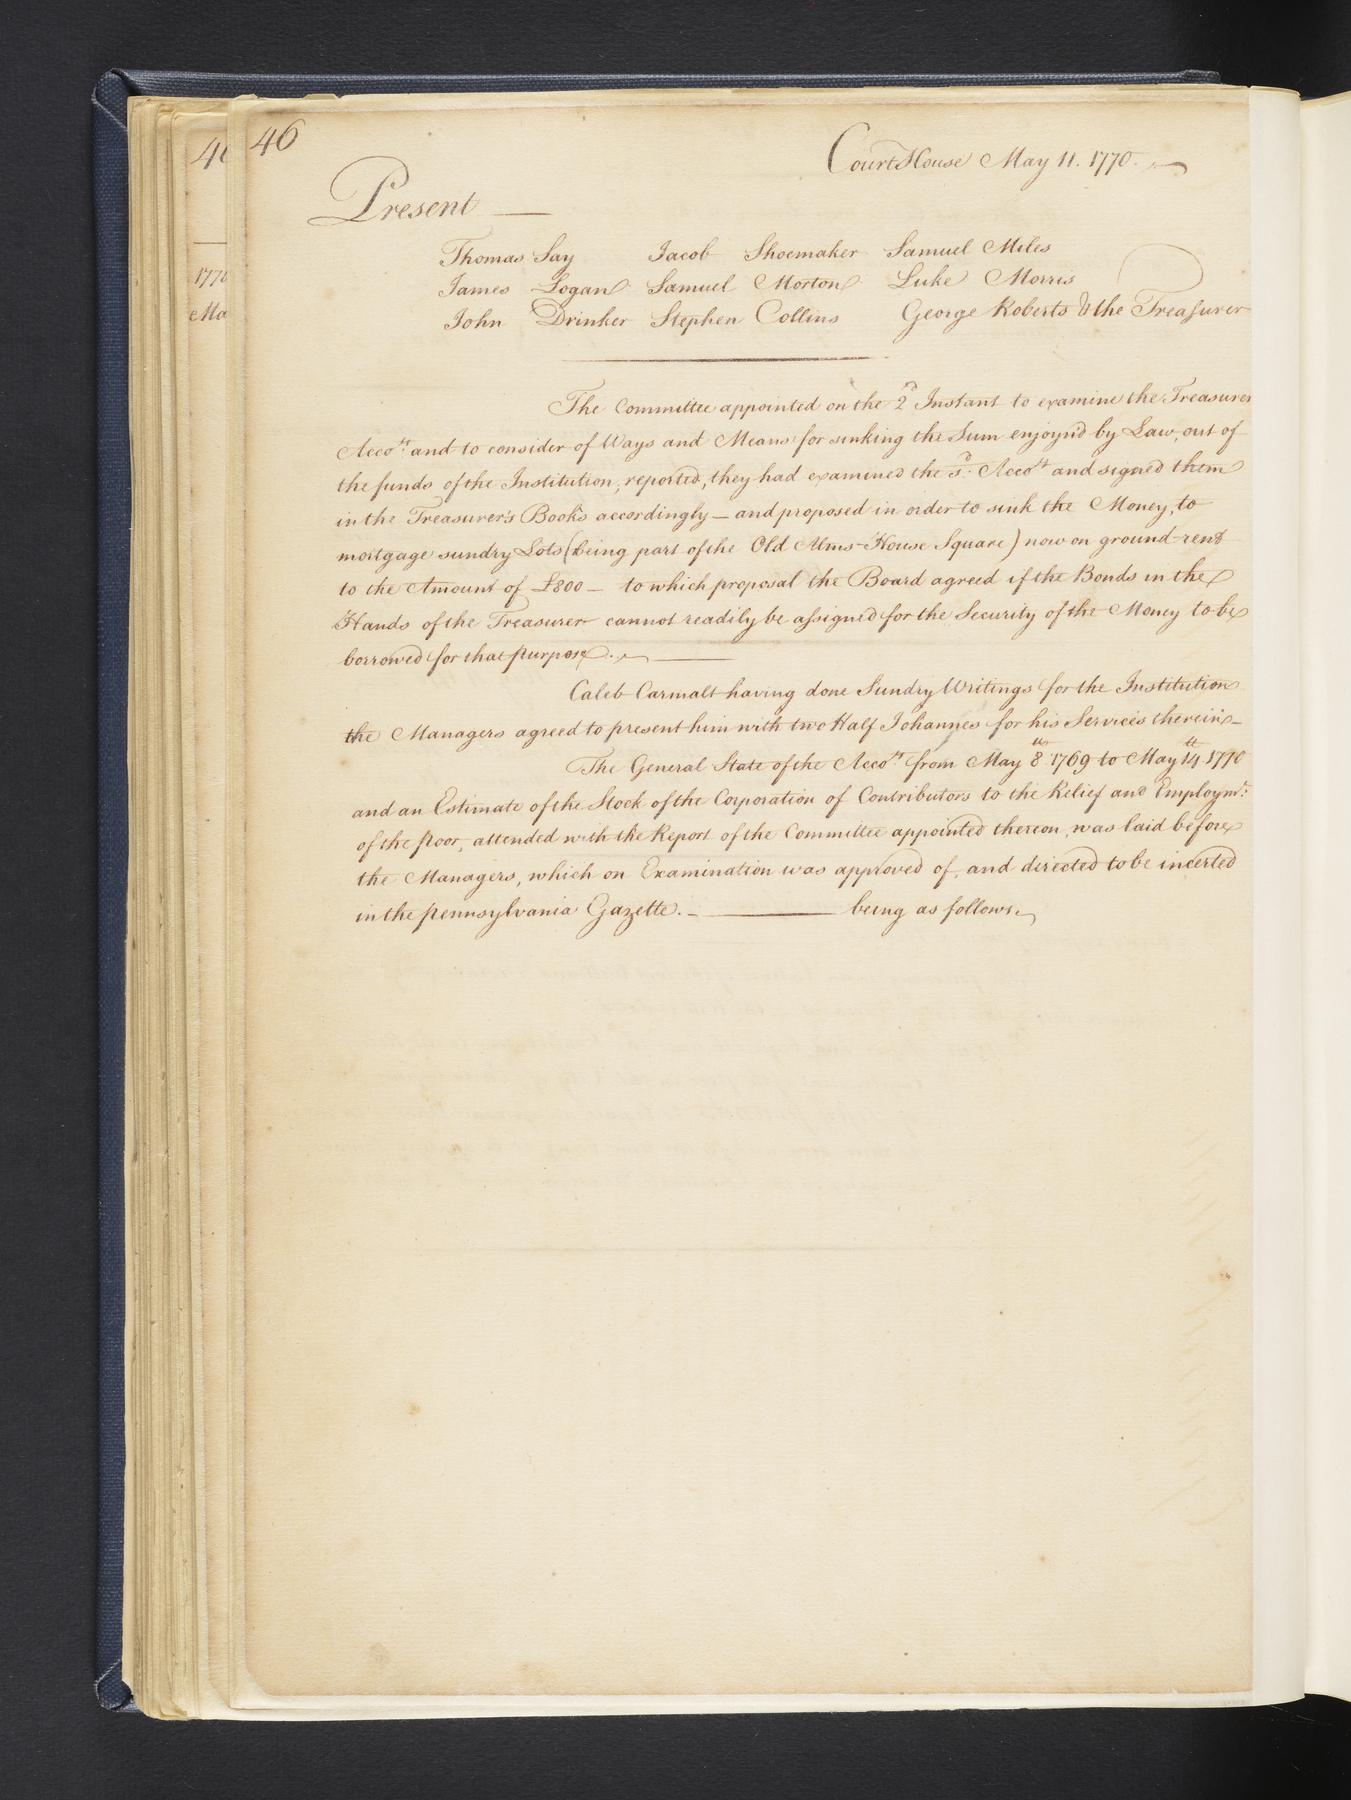 46
Court House May 11. 1770.
Present
Thomas Say Jacob Shoemaker Samuel Miles
James Logan Samuel Morton Luke Morris
John Drinker Stephen Collins George Roberts & the Treasurer
The Committee appointed on the 2d Instant to examine the Treasurer
Accots. and to consider of Ways and Means for sinking the Sum enjoyn'd by Law, out of
the funds of the Institution, reported, they had examined the sd. Accots and signed them
in the Treasurer's Books accordingly — and proposed in order to sink the Money, to
mortgage sundry Lots (being part of the Old Alms-House Square) now on ground-rent
to the Amount of £800 — to which proposal the Board agreed if the Bonds in the
Hands of the Treasurer cannot readily be assigned for the Security of the Money to be
borrowed for that purpose.
Caleb Carmalt having done Sundry Writings for the Institution
the Managers agreed to present him with two Half Johannes for his Services therein —
The General State of the Accots from May 8th 1769 to May 14th 1770
and an Estimate of the Stock of the Corporation of Contributors to the Relief and Employmt.
of the poor, attended with the Report of the Committee appointed thereon, was laid before
the Managers, which on Examination was approved of, and directed to be incerted
in the pennsylvania Gazette. — being as follows
4
1770
Ma